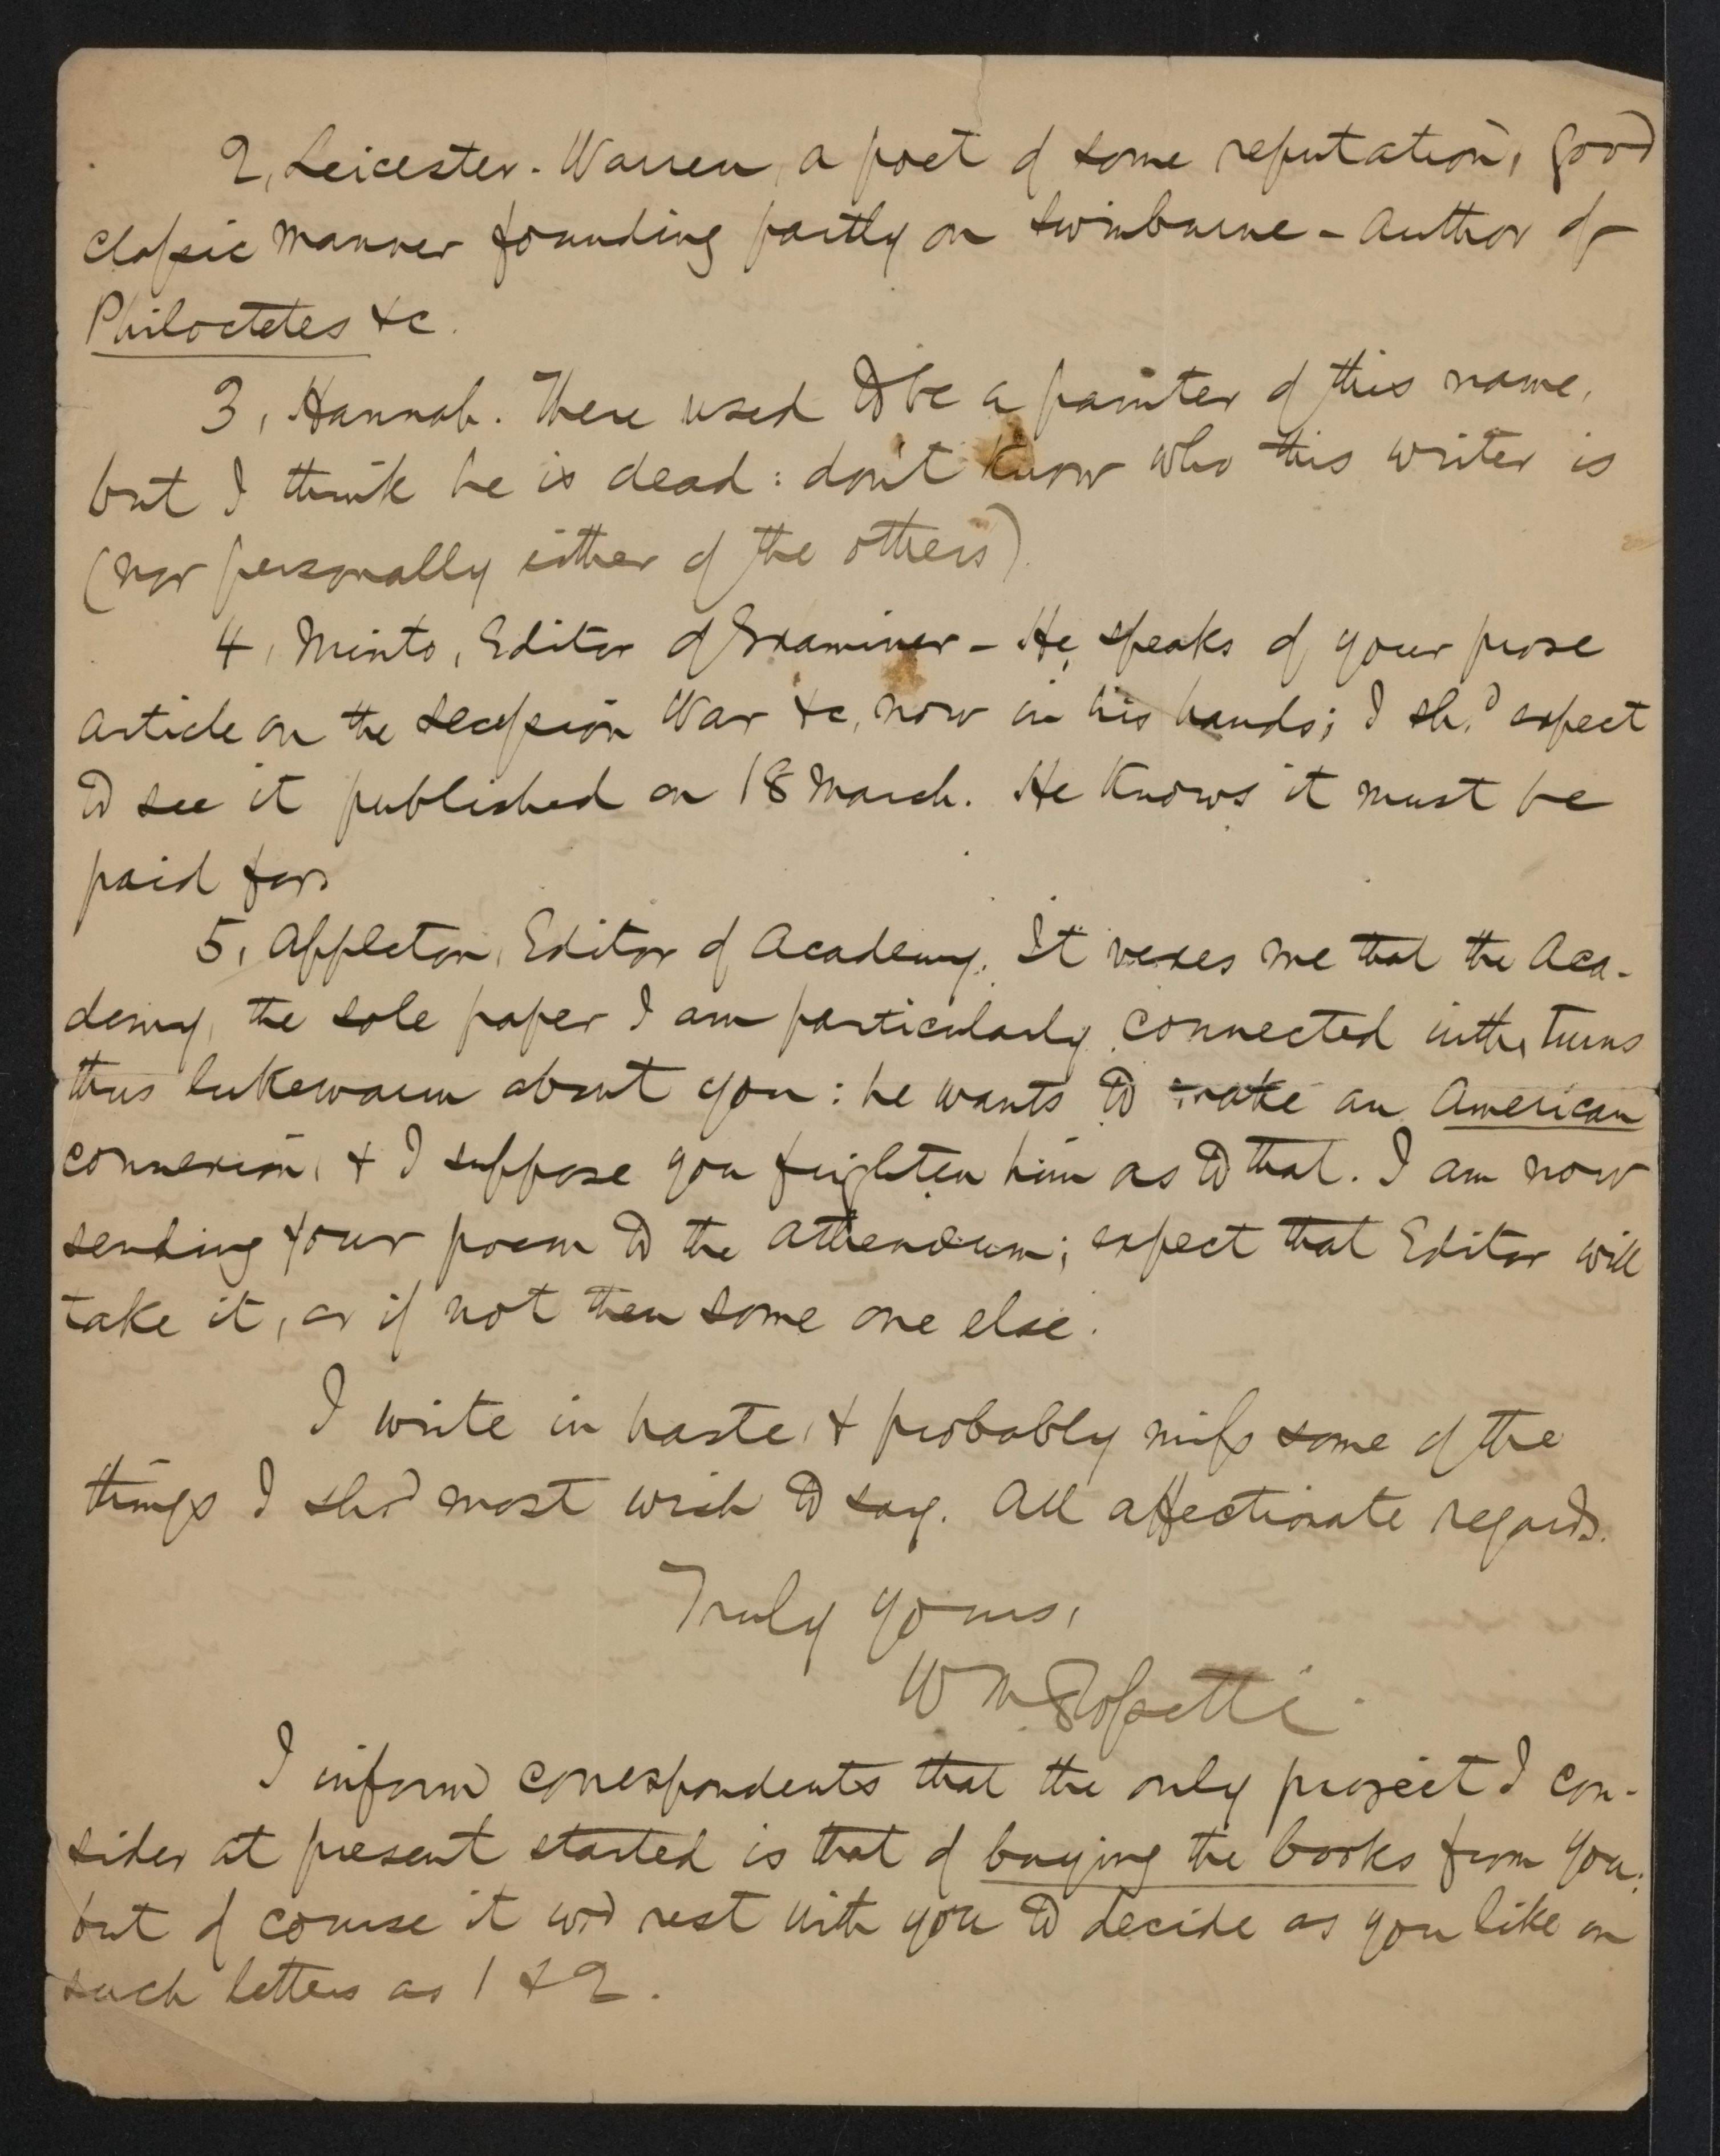 2, Leicester-Warren, a poet of some reputation, good
classic manner founding partly on Swinburne - Author of
Philoctetes &c.
3, Hannah. There used to be a painter of this name,
but I think he is dead: don't know who this writer is
(nor personally either of the others).
4, Minto, Editor of Examiner - He speaks of your prose
article on the Secession War &c, now in his hands; I shd. expect
to see it published on 18 March. He knows it must be
paid for.
5, Appleton, Editor of Academy. It vexes me that the Aca-
demy, the sole paper I am particularly connected with, turns
thus lukewarm about you: he wants to make an American
connexion, & I suppose you frighten him as to that. I am now
sending your poem to the Athenæum; expect that Editor will
take it, or if not then some one else.
I write in haste, & probably miss some of the
things I shd most wish to say. All affectionate regards.
Truly yours,
W M Rossetti.
I inform correspondents that the only project I con-
sider at present started is that of buying the books from you:
but of course it wd rest with you to decide as you like on
such letters as 1 & 2.